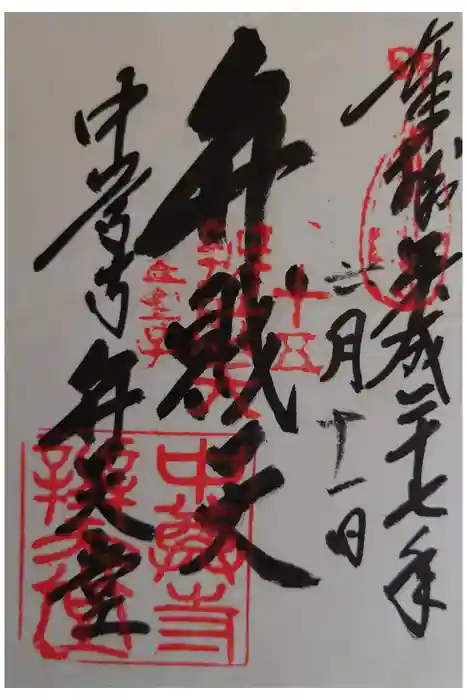 奉拝 平成二十七年
二月十一日
弁財天
中尊寺 弁天堂
十五
中尊寺
辨天堂